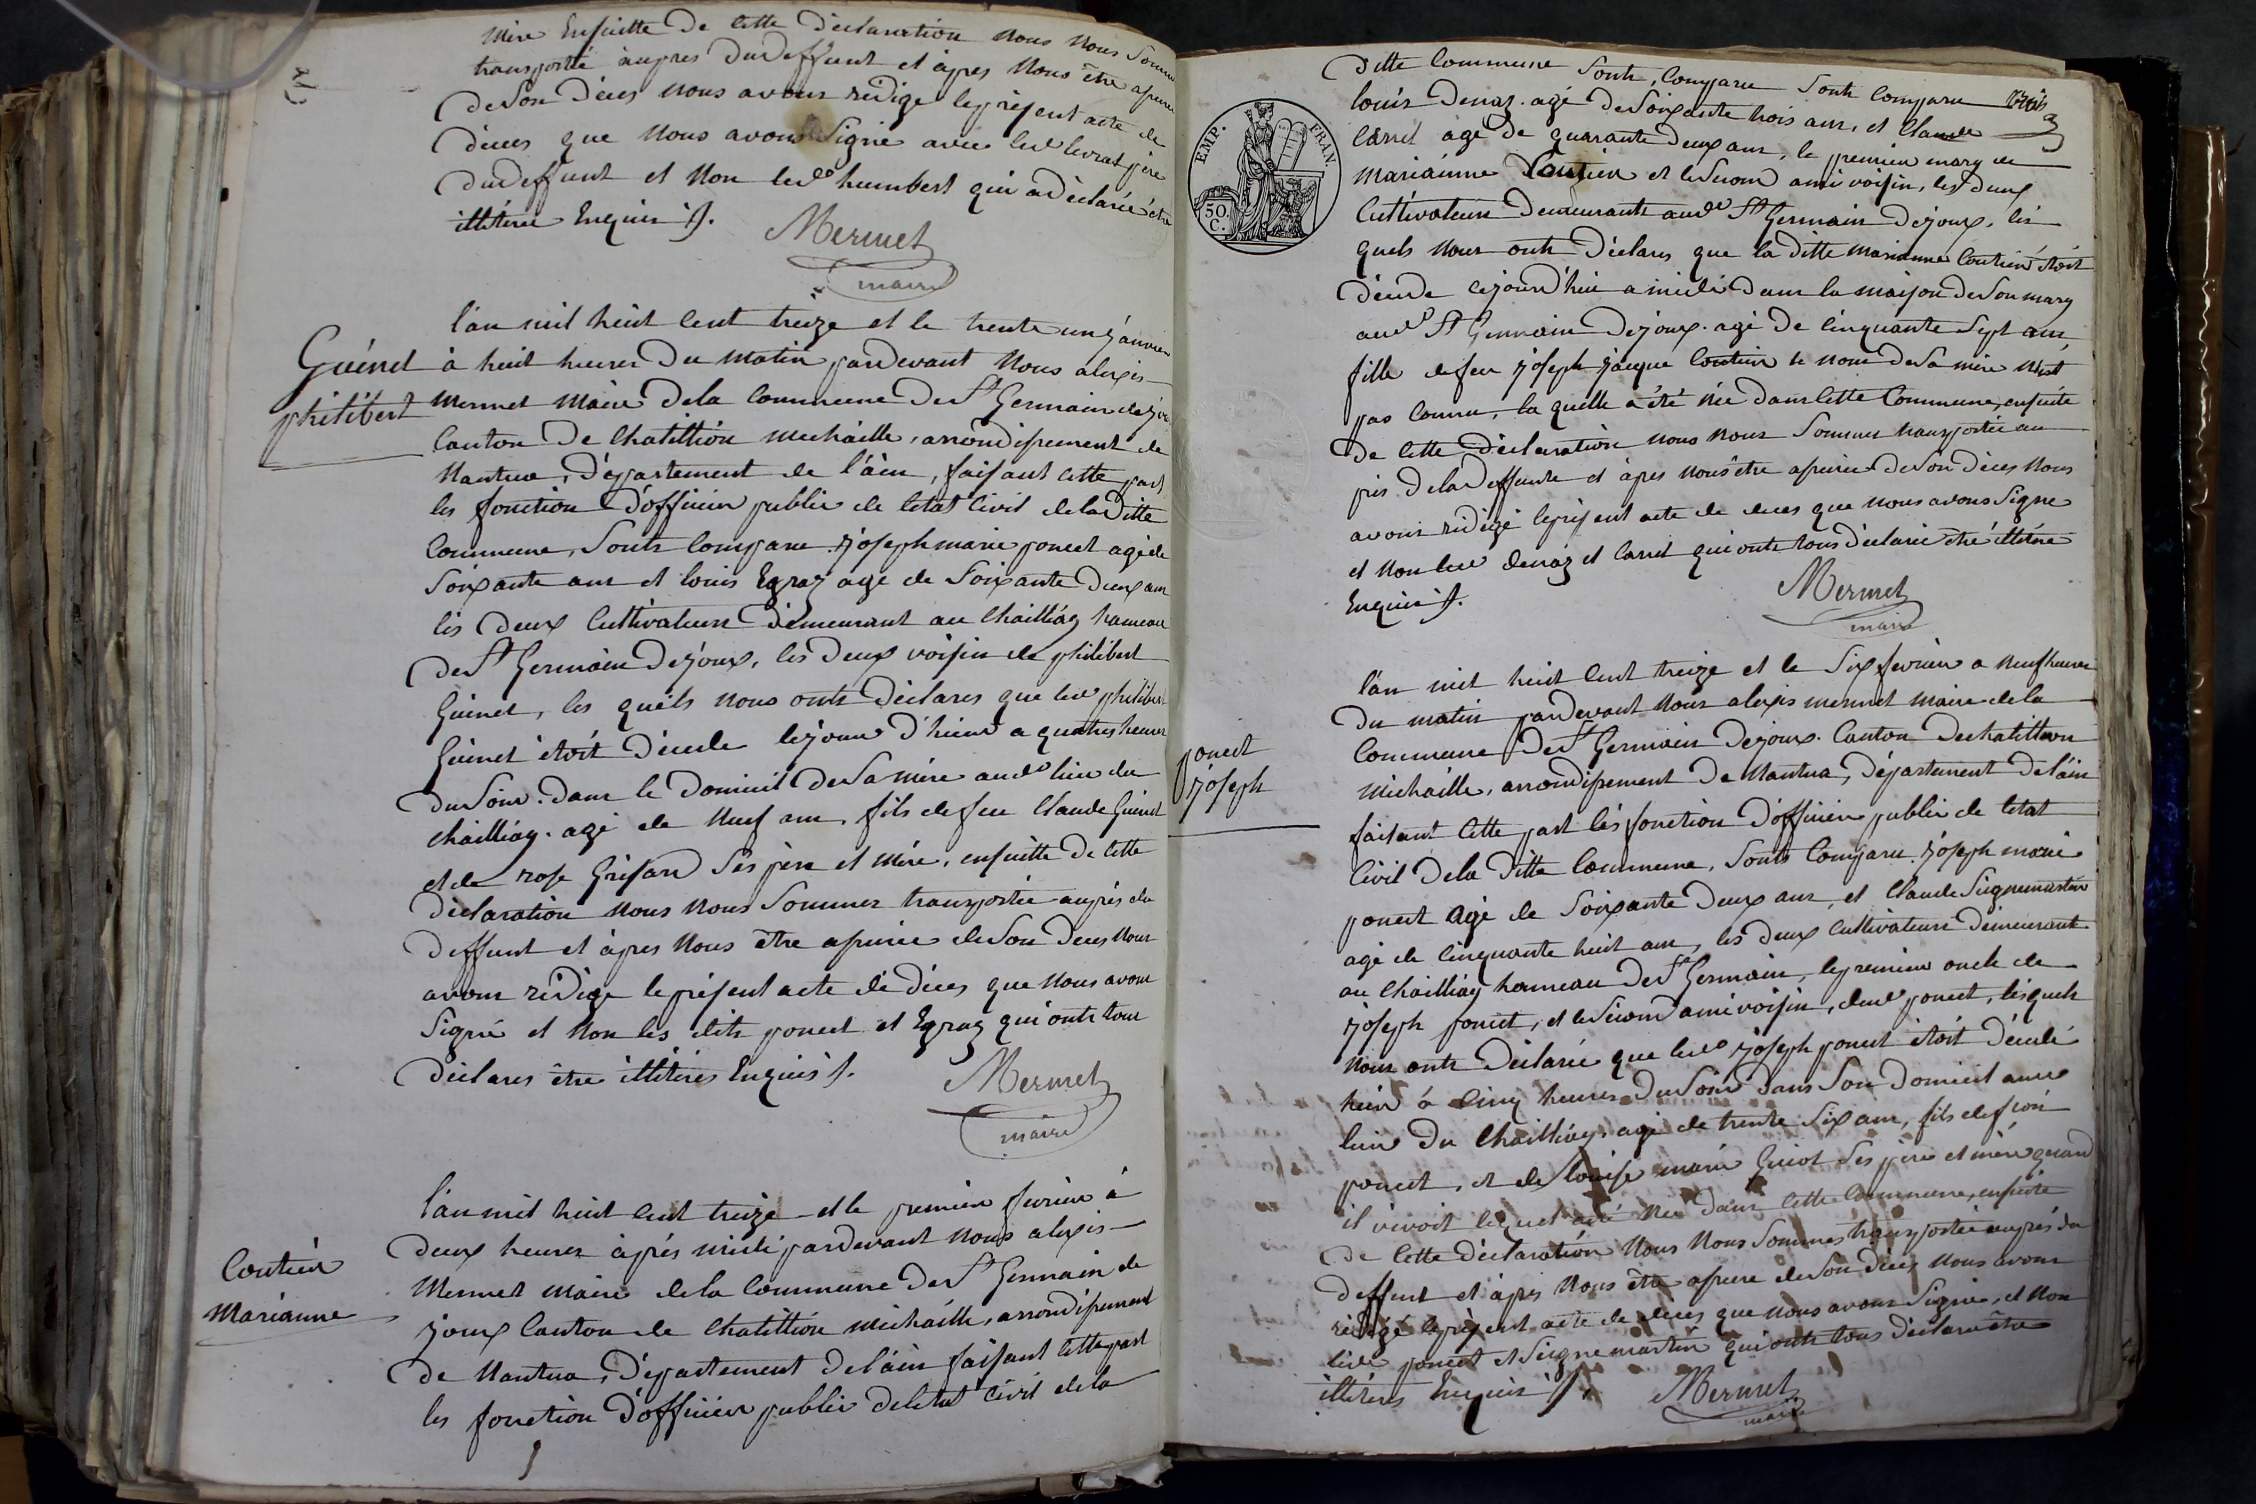 mère Ensuitte de cette déclaration nous nous somme
transportté aupres dudeffunt et àpres nous être apuree
deson déces nous avons rédige leprésent acte de
déces que nous avons signé avec led livrat père
dudeffunt et non led humbert qui a déclarée être
illitéré Enquis ./.
Mermet
maire
l'an mil heuit cent treize et le trente un janvier
Guénet
philibert
à heuit heures du matin pardevant nous alexis
mermet maire dela commune de St Germain dejoux
canton de chatillion michaille, arrondissement de
nantua, département de l'ain, faisant cette part
les fonction d'officier public de l'etat civil deladitte
commune, sonts comparu joseph marie poncet agé de
soixante ans et louis Egraz age de soixante deux ans
lès deux cultivateurs demeurant au chailliay hameau
de St Germain Dejoux, les deux voisin de philibert
Guinet, les quels nous onts déclares que led philibert
Guinet étoit décede lejour d'hiers a quatres heures
du soir. dans le domicil desa mère aud lieu du
chailliay. agé de neuf ans, fils defeu claude Guinet
et de rose Grisard ses père et mère, ensuitte de cette
déclaration nous nous sommes transportée auprés du
deffunt et àpres nous être apurée deson deces nous
avons rédige leprésent acte de déces que nous avons
signé et non les dits poncet et Egraz qui onts tous
déclares être illitéres Enquis ./.
Mermet
maire
l'an mil heuit cent treize et le premier fevrier à
Coutier
Marianne
deux heures àprés midi pardevant nous alexis
Mermet maire dela commune de St Germain de
joux canton de chatillion michaille, arrondissement
de nantua, département del'ain faisant cette part
les fonction d'officier public deletat civil dela
EMP. FRAN.
50. C.
ditte commune sonts, comparu sonts comparu
louis denaz. agé desoixante trois ans, et claude
carret agé de quarante deux ans, le premier mary de
mariánne Coutier et lesecond ami voisin, les deux
cultivateurs demeurants aud St Germain Dejoux, les
quels nous onts déclares que la ditte marianne coutier étoit
décede cejourd'hui a midi dans la maison deson mary
aud St Germain Dejoux. agé de cinquante sept ans,
fille defeu joseph jacque coutier le nom desa mère n'est
pas connu, la quelle a été née dans cette commune, ensuite
de cette déclaration nous nous sommes transportée au
près deladeffunte et àpres nous être apurée deson déces nous
avons rédigé leprésent acte de deces que nous avons signe
et non led denaz et carret qui onts tous déclarée être illitéré
Enquis ./.
Mermet
maire
l'an mil heuit cent treize et le six fevrier a neuf heures
du matin pardevant nous alexis mermet maire dela
commune de St Germain dejoux. canton dechatillion
poncet
joseph
michaille, arrondissement de nantua, département del'ain
faisant cette part lès fonction d'officier public de letat
civil dela ditte commune, sonts comparu joseph marie
poncet agé de soixante deux ans, et claude Seignemartin
agé de cinquante heuit ans, les deux cultivateurs démeurants
au chailliay hameau de St Germain, lepremier oncle de
joseph poncet, et lesecond ami voisin, dud poncet, lesquels
nous onts déclarée que led joseph poncet étoit décedé
hier à cinq heures dusoir dans son domicil aud
lieu du chailliay. agé de trente six ans, fils de
poncet, et de louise marie Guiot ses père et mère quand
il vivoit lequel a été né dans cette commune, ensuite
de cette déclaration nous nous sommes transportée auprés du
deffunt et àpres nous être apuree deson déces nous avons
rédigé leprésent acte de deces que nous avons signée, et non
led poncet et seignemartin qui onts tous déclaré être
illitérés Enquis ./.
Mermet
maire